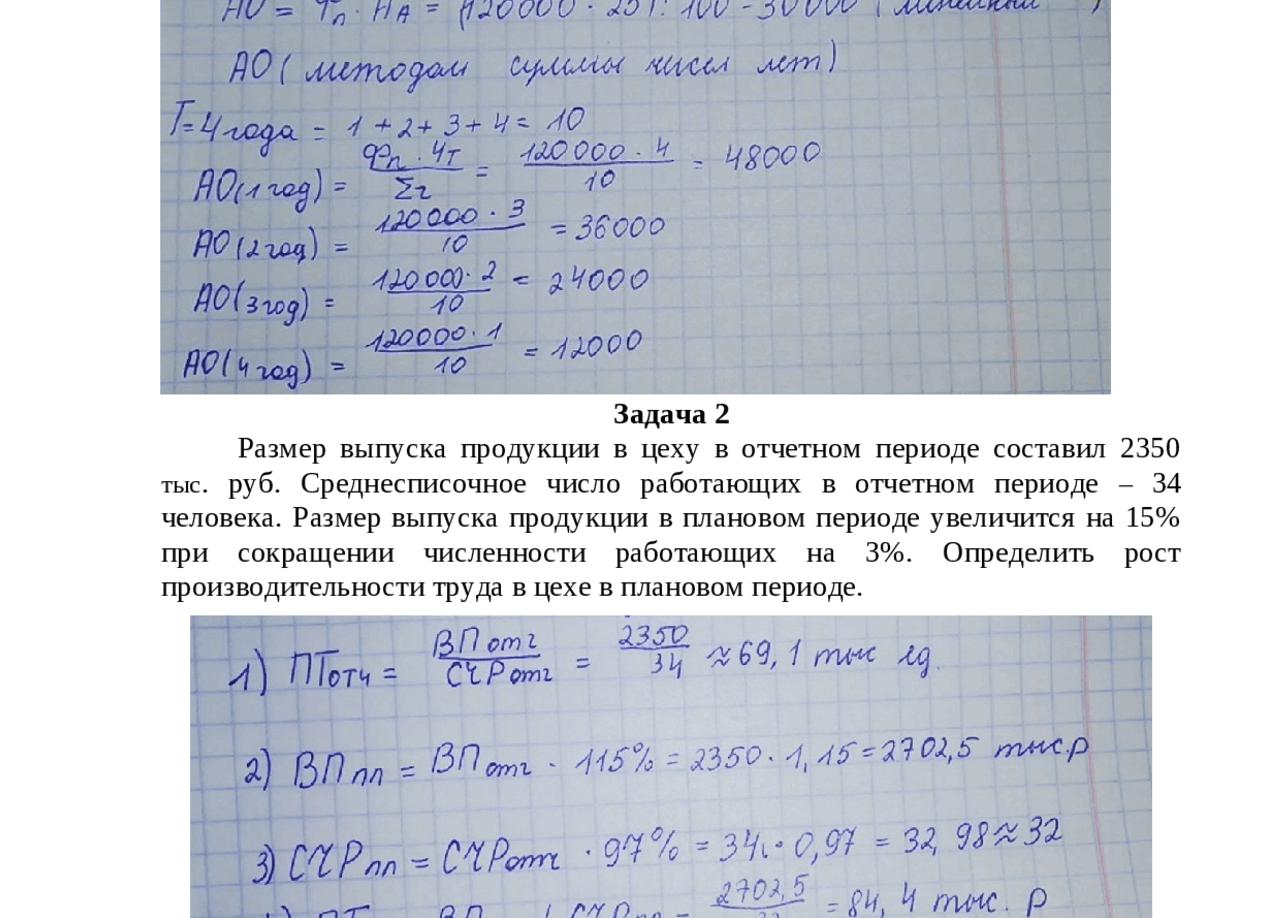 АО = Фп · НА = (120000 · 25) : 100 = 30000 (линейный )
АО ( методом суммы чисел лет)
T=4 года = 1 + 2 + 3 + 4 = 10
АО(1 год) = Фп · Чт / Σг = 120000 · 4 / 10 = 48000
АО(2 год) = 120000 · 3 / 10 = 36000
АО(3 год) = 120000 · 2 / 10 = 24000
АО(4 год) = 120000 · 1 / 10 = 12000
Задача 2
Размер выпуска продукции в цеху в отчетном периоде составил 2350
тыс. руб. Среднесписочное число работающих в отчетном периоде – 34
человека. Размер выпуска продукции в плановом периоде увеличится на 15%
при сокращении численности работающих на 3%. Определить рост
производительности труда в цехе в плановом периоде.
1) ПТотч = ВПотч / СЧРотч = 2350 / 34 ≈ 69,1 тыс ед.
2) ВПпл = ВПотч · 115% = 2350 · 1,15 = 2702,5 тыс.р
3) СЧРпл = СЧРотч · 97% = 34 · 0,97 = 32,98 ≈ 32
ПТ ВП / СЧРпл = 2702,5 / 32 = 84,4 тыс. р